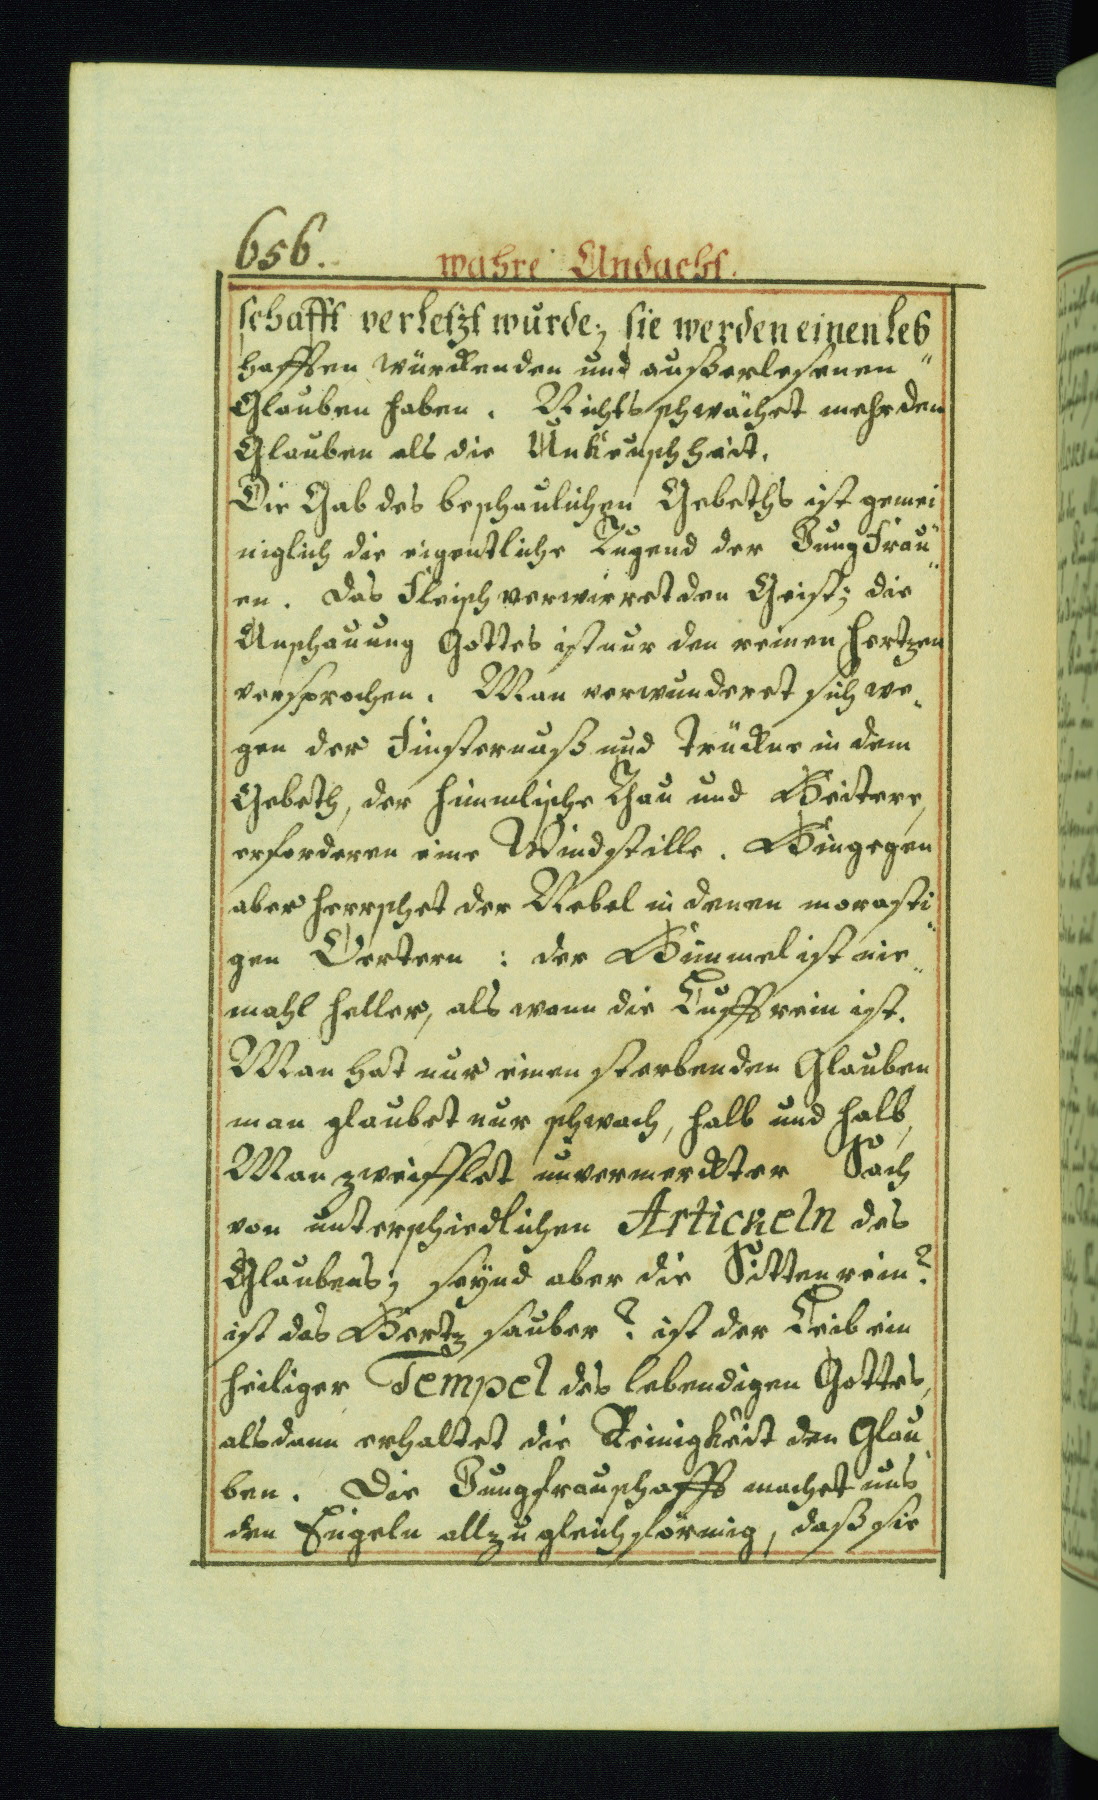 656.
wahre Andacht.
schafft verletzt wurde; sie werden einen leb
hafften würckenden und außerlesenen"
Glauben haben. Nichts schwächet mehr den
Glauben als die Unkeuschheit.
Die Gab des beschaulichen Gebeths ist gemei
niglich die eigentliche Tugend der Jungfrau"
en. das Fleisch verwirret den Geist; die
Anschauung Gottes ist nur den reinen Hertzen
versprochen. Man verwunderet sich we„
gen der Finsternuß und trückne in dem
Gebeth, der himmlische Thau und Heitere,
erforderen eine Windstille. Hingegen
aber herrschet der Nebel in denen morasti"
gen Oertern: der Himmel ist nie"
mahl heller, als wann die Lufft rein ist.
Man hat nur einen sterbenden Glauben
man glaubet nur schwach, halb und halb,
Man zweifflet unvermerckter Sach
von unterschiedlichen Artickeln des
Glaubens; seynd aber die Sitten rein?
ist das Hertz sauber? ist der Leib ein
heiliger Tempel des lebendigen Gottes,
alsdann erhaltet die Reinigkeit den Glau„
ben. Die Jungfrauschafft machet uns
den Engeln allzu gleichförmig, daß sie